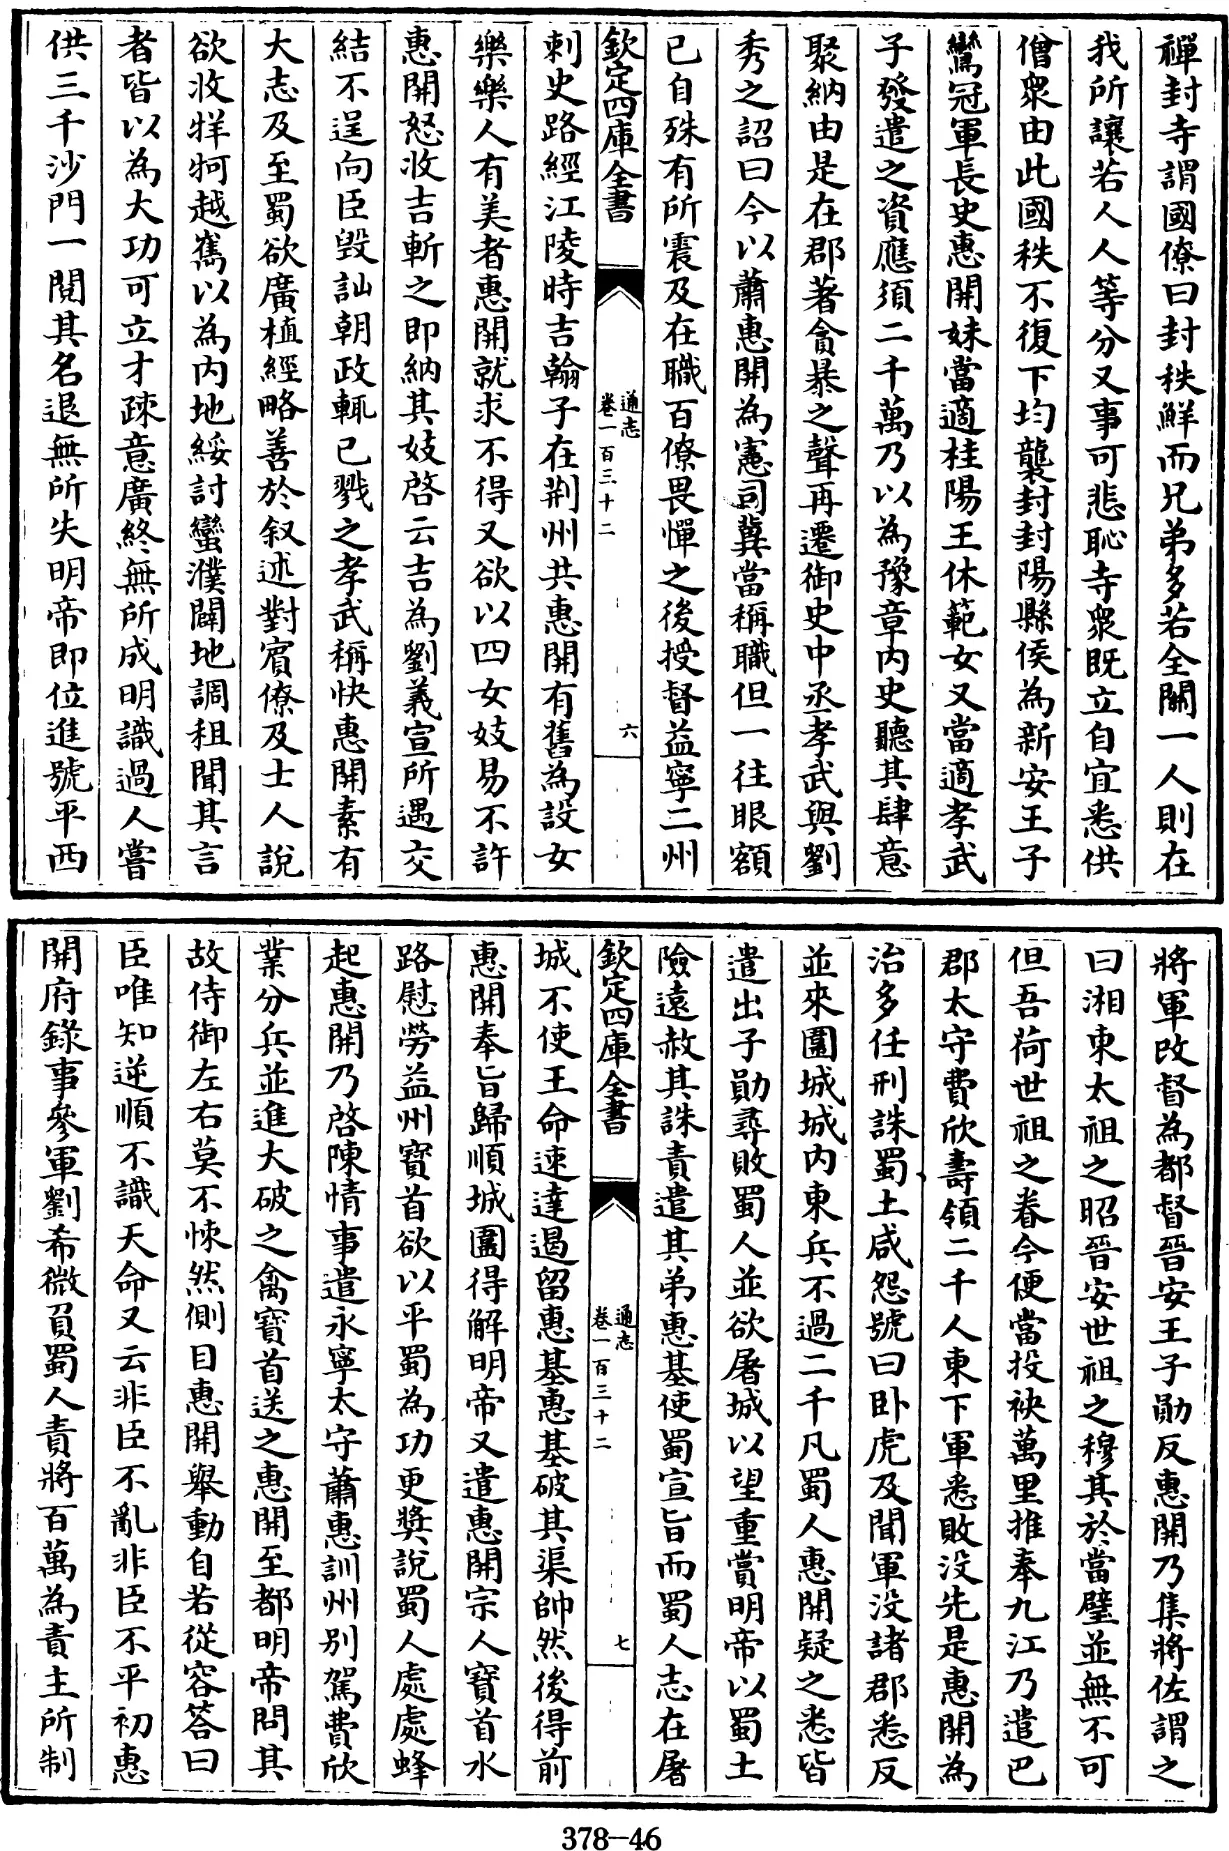 禪封寺謂國僚曰封秩鮮而兄弟多若全關一人則在
我所讓若人人等分又事可悲恥寺衆既立自宜悉供
僧衆由此國秩不復下均襲封封陽縣侯為新安王子
鸞冠軍長史惠開妹當適桂陽王休範女又當適孝武
子發遣之資應須二千萬乃以為豫章内史聽其肆意
聚納由是在郡著貪暴之聲再遷御史中丞孝武與劉
秀之詔曰今以蕭惠開為憲司冀當稱職但一往眼額
已自殊有所震及在職百僚畏憚之後授督益寧二州
欽定四庫全書
通志
卷一百三十二
六
刺史路經江陵時吉翰子在荆州共惠開有舊為設女
樂樂人有美者惠開就求不得又欲以四女妓易不許
惠開怒收吉斬之即納其妓啓云吉為劉義宣所遇交
結不逞向臣毀訕朝政輒已戮之孝武稱快惠開素有
大志及至蜀欲廣植經略善於叙述對賓僚及士人說
欲收牂牁越嶲以為内地綏討蠻濮闢地調租聞其言
者皆以為大功可立才疎意廣終無所成明識過人嘗
供三千沙門一閱其名退無所失明帝即位進號平西
將軍改督為都督晉安王子勛反惠開乃集將佐謂之
曰湘東太祖之昭晉安世祖之穆其於當璧並無不可
但吾荷世祖之眷今便當投袂萬里推奉九江乃遣巴
郡太守費欣壽領二千人東下軍悉敗没先是惠開為
治多任刑誅蜀土咸怨號曰卧虎及聞軍没諸郡悉反
並來圍城城内東兵不過二千凡蜀人惠開疑之悉皆
遣出子勛尋敗蜀人並欲屠城以望重賞明帝以蜀土
險遠赦其誅責遣其弟惠基使蜀宣旨而蜀人志在屠
欽定四庫全書
通志
卷一百三十二
七
城不使王命速達遏留惠基惠基破其渠帥然後得前
惠開奉旨歸順城圍得解明帝又遣惠開宗人寶首水
路慰勞益州寶首欲以平蜀為功更奬說蜀人處處蜂
起惠開乃啓陳情事遣永寧太守蕭惠訓州别駕費欣
業分兵並進大破之禽寶首送之惠開至都明帝問其
故侍御左右莫不悚然側目惠開舉動自若從容答曰
臣唯知逆順不識天命又云非臣不亂非臣不平初惠
開府錄事參軍劉希微負蜀人責將百萬為責主所制
378-46